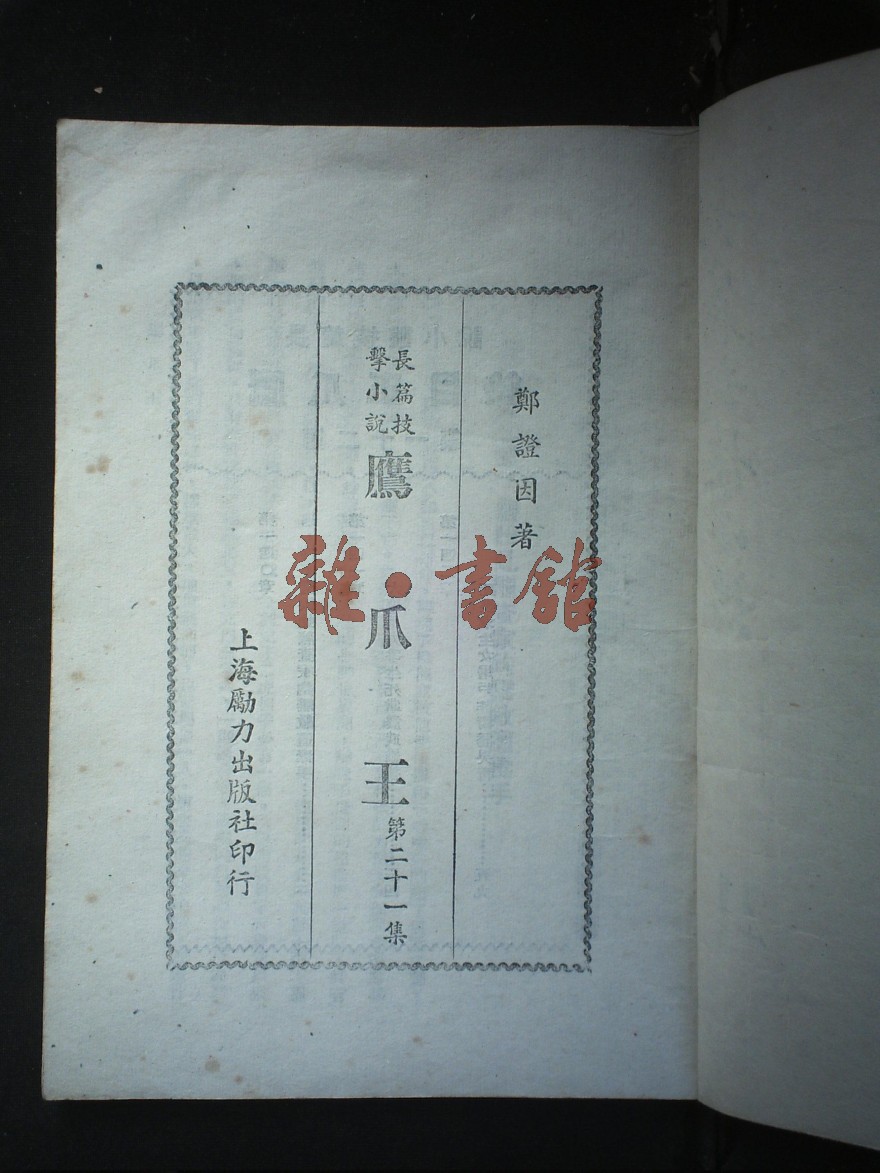 鄭證因著
長篇技
擊小說
鷹爪王
第二十一集
上海勵力出版社印行
雜·書館